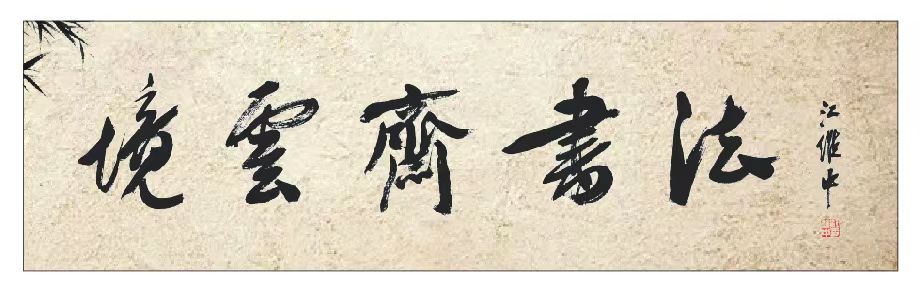 境雲齋書法
江維中